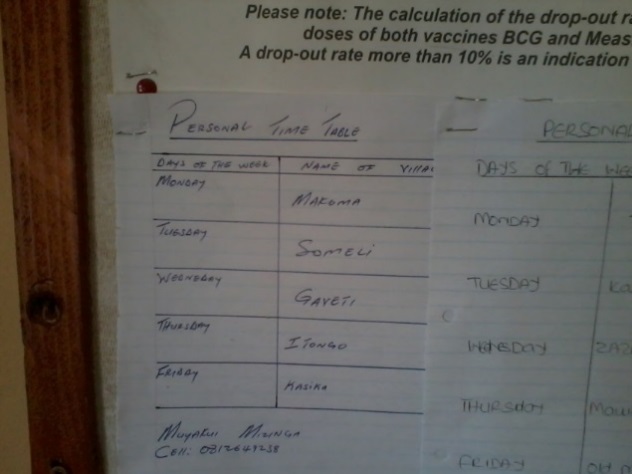 Please note: The calculation of the drop-out ra
doses of both vaccines BCG and Meas
A drop-out rate more than 10% is an indication
PERSONAL TIME TABLE
DAYS OF THE WEEK NAME OF VILLA
MONDAY MAKOMA
TUESDAY SOMELI
WEDNEDAY GAVETI
THURSDAY ITONGO
FRIDAY KASIKA
CELL:
PERSONAL
DAYS OF THE WEE
MONDAY
TUESDAY Ka
WEDNESDAY ZAZ
THURSDAY
FRIDAY